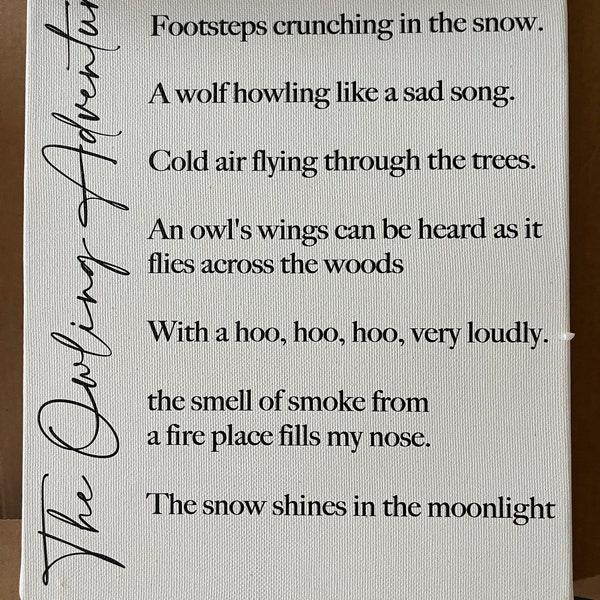 The Owling Adventur
Footsteps crunching in the snow.
A wolf howling like a sad song.
Cold air flying through the trees.
An owl's wings can be heard as it
flies across the woods
With a hoo, hoo, hoo, very loudly.
the smell of smoke from
a fire place fills my nose.
The snow shines in the moonlight